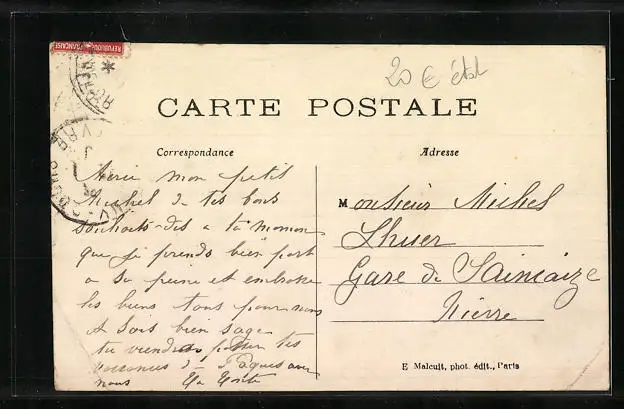 REPUBLIQUE FRANÇAISE
20 € état
CARTE POSTALE
Correspondance
Adresse
Merie mon petit
Michel de tes bons
souhaits dis a ta maman
que je prends bien part
a sa peine et embrasse
les biens tous pour nous
et sois bien sage
tu viendras passer tes
vacances à Pâques avec
nous Ta
Monsieur Michel
Lhuer
Gare de Saincaize
Nièvre
E Malcuit, phot. édit., Paris